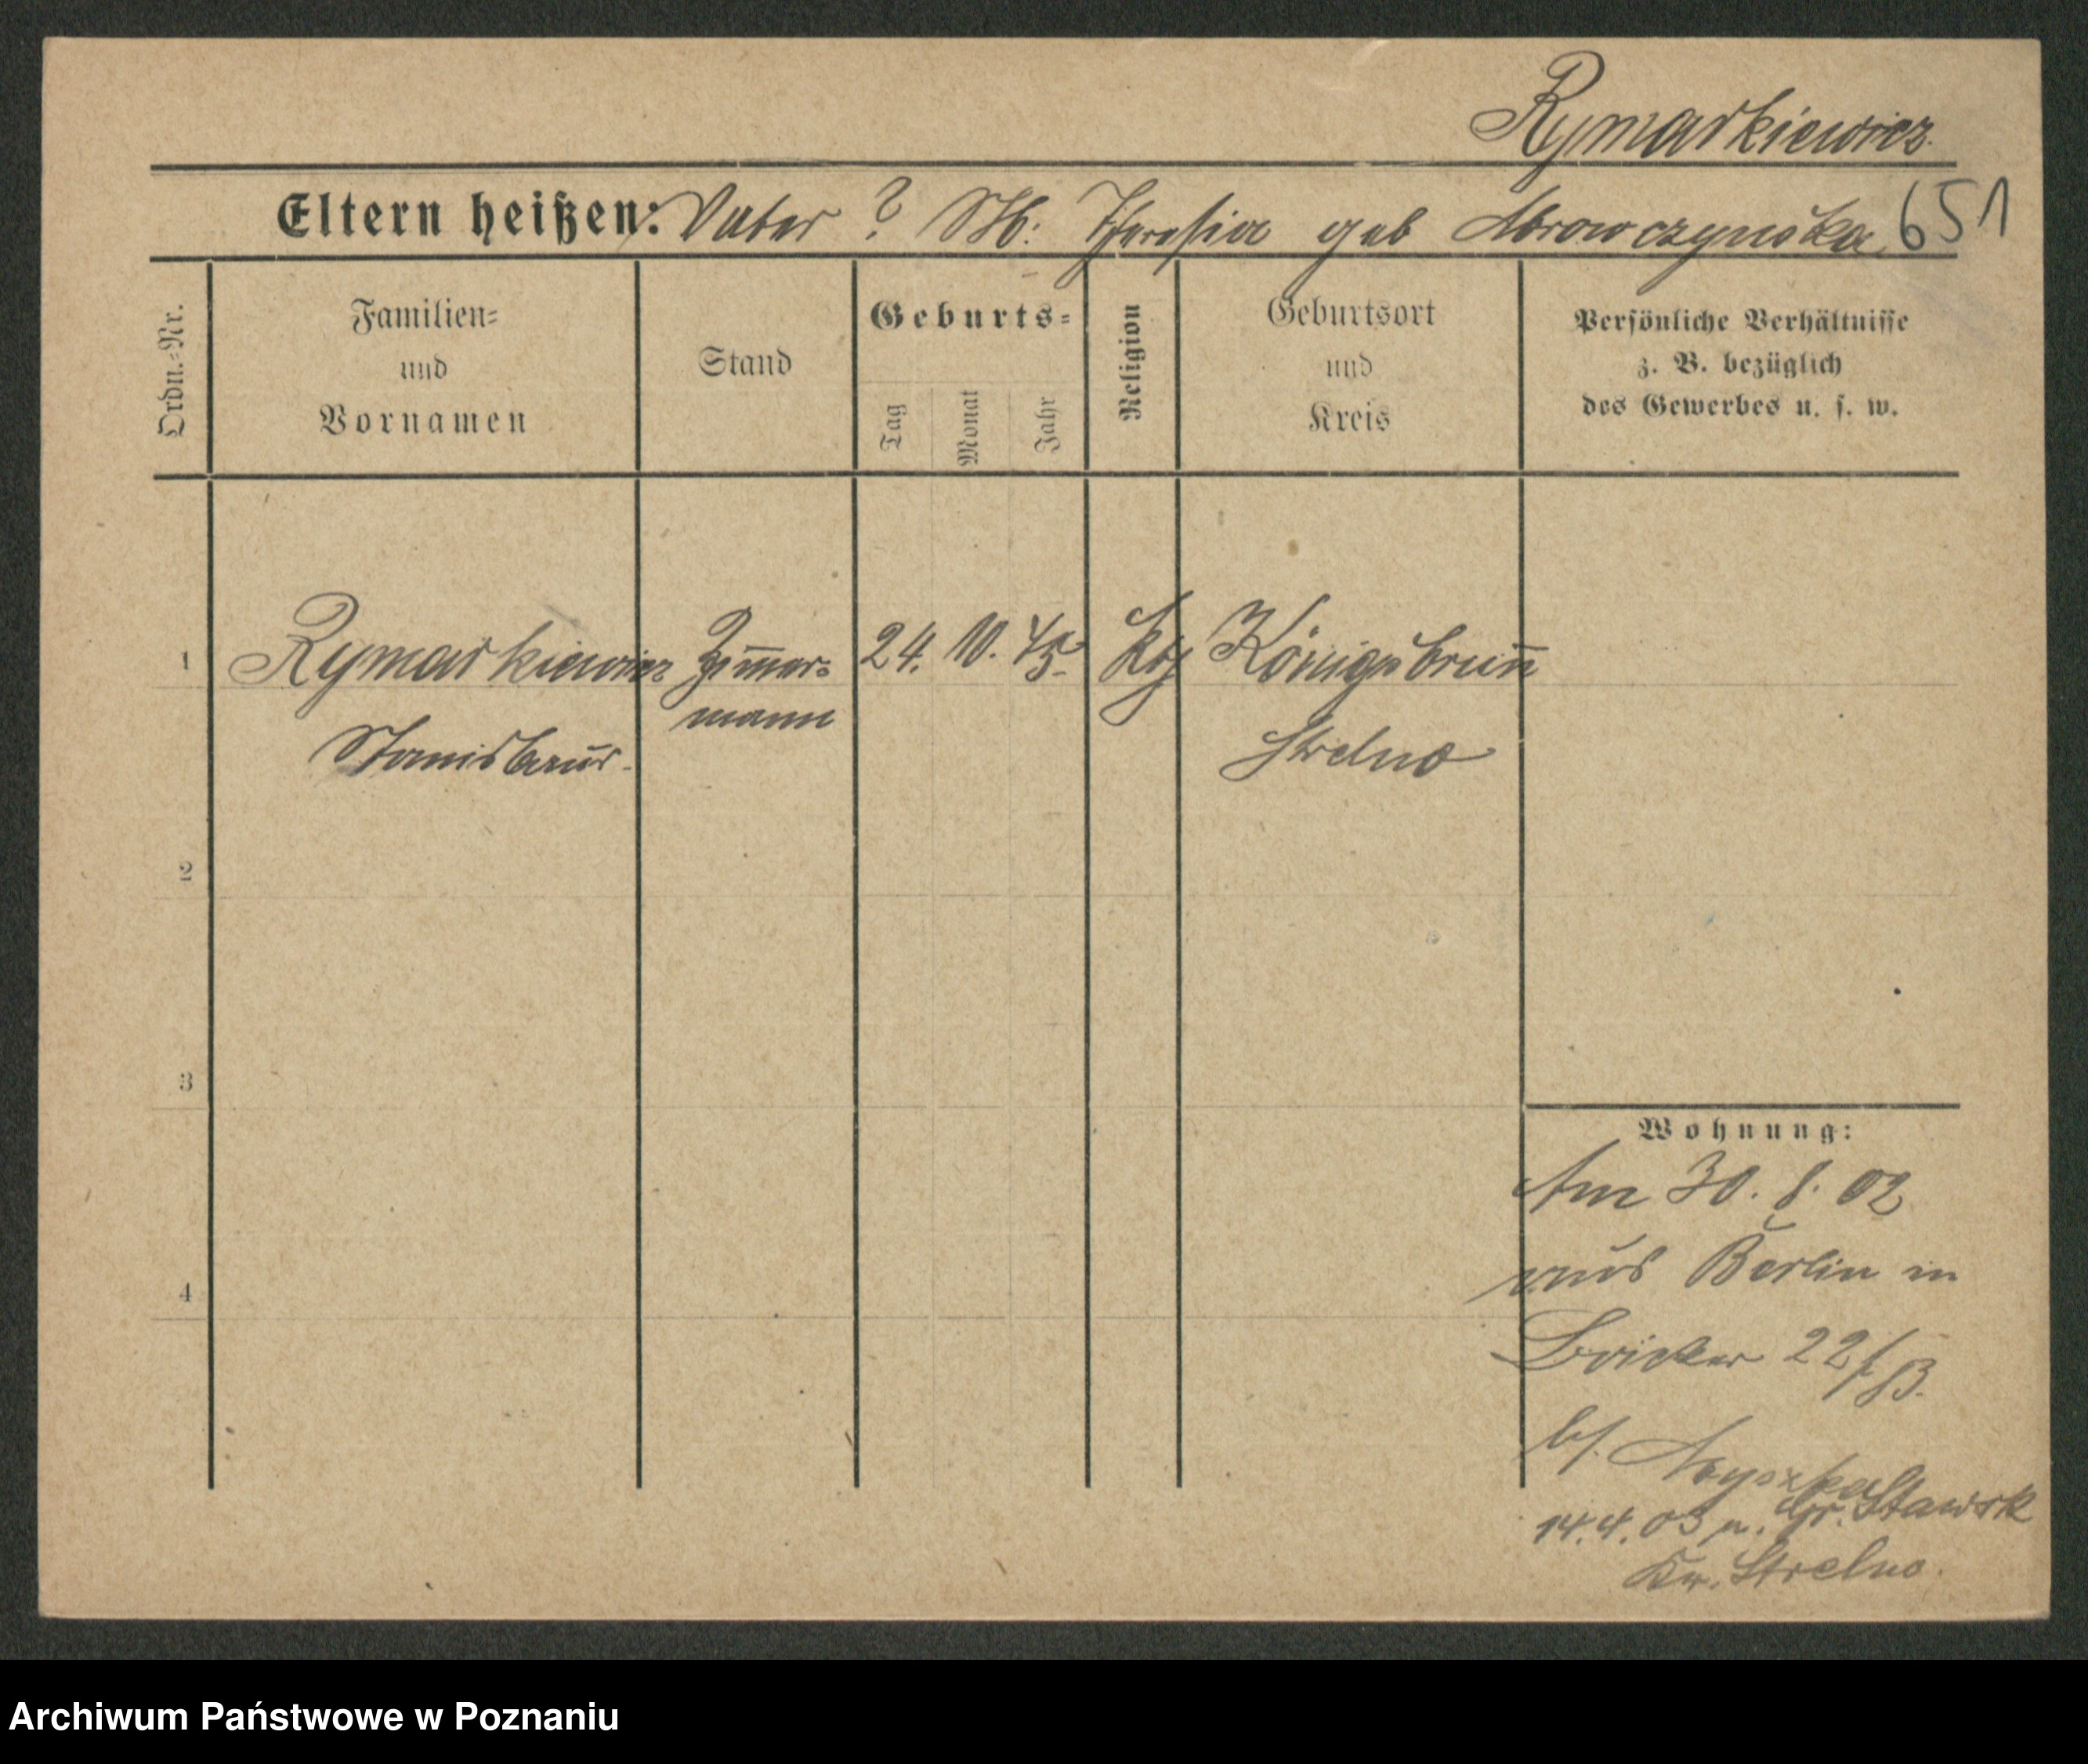 Rymarkiewicz.
Eltern heißen: Vater ? M: Theresia geb Mrowczynska 651
Ordn.=Nr.
Familien=
und
Vornamen
Stand
Geburts=
Tag
Monat
Jahr
Religion
Geburtsort
und
Kreis
Persönliche Verhältnisse
z. B. bezüglich
des Gewerbes u. s. w.
1 Rymarkiewicz Zim̅er= 24. 10. 45 kth Königsbrun̅
mann
Stanislaus. Strelno
2
3
4
Wohnung:
Am 30. 8. 02
aus Berlin in
22/ B.
b/.
14.4.03 n. Gr. Stawsk
Kr. Strelno.
Archiwum Państwowe w Poznaniu